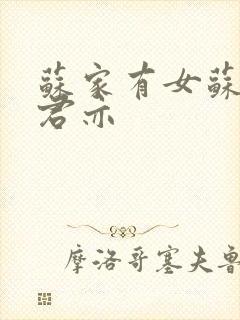 蘇家有女蘇
君亦
摩洛哥塞夫魯